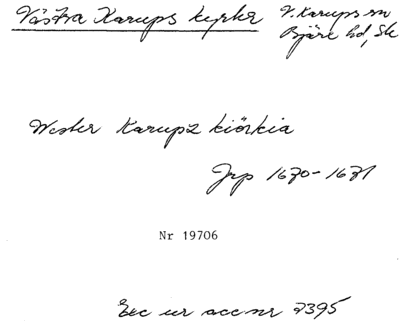 Västra Karups kyrka
V. Karups sn
Bjäre hd, Sk
Wester Karupz kiörkia
Jrp 1670-1671
Nr 19706
Exc ur acc nr 2395